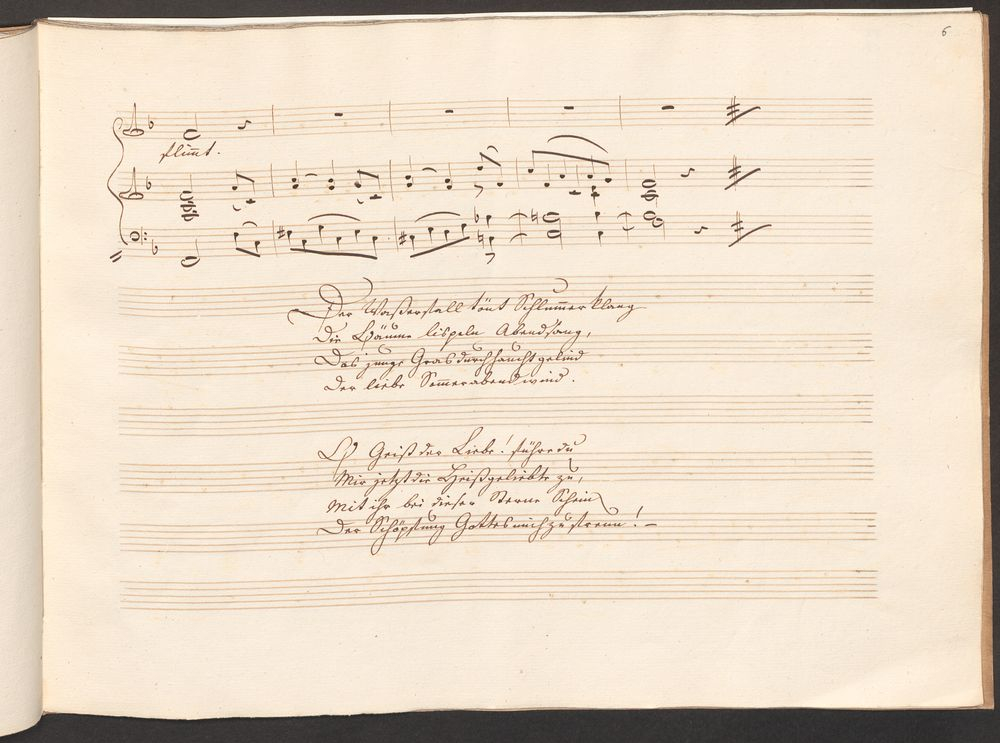 6
flim̅t.
Der Waßerfall tönt Schlum̅erklang
Die Bäume lispeln Abendsang,
Das junge Gras durchhaucht gelind
Der liebe Som̅erabendwind.
O Geist der Liebe! führe du
Mir jetzt die Heißgeliebte zu,
Mit ihr bei dieser Sterne Schein
Der Schöpfung Gottes mich zu freun! –